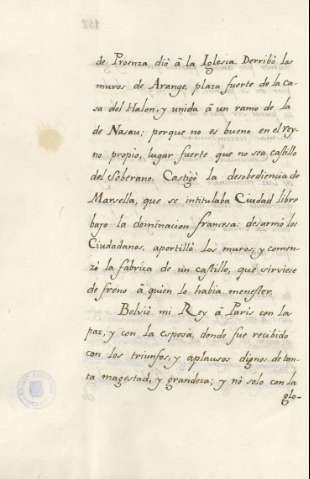 de Proenza dió á la Iglesia. Derribó los
muros de Arange, plaza fuerte de la ca-
sa del Halon, y unida á un ramo de la
de Nasau; porque no es bueno en el rey-
no propio, lugar fuerte que no sea castillo
del Soberano. Castigó la desobediencia de
Marsella, que se intitulaba Ciudad libre
bajo la dominacion francesa: desarmó los
Ciudadanos, apertilló los muros, y comen-
zó la fabrica de un castillo, que sirviese
de freno á quien lo habia menester.
Bolvió mi Rey á Paris con la
paz, y con la esposa, donde fue recibido
con los triunfos, y aplausos dignos de tan-
ta magestad, y grandeza; y no solo con la
glo-